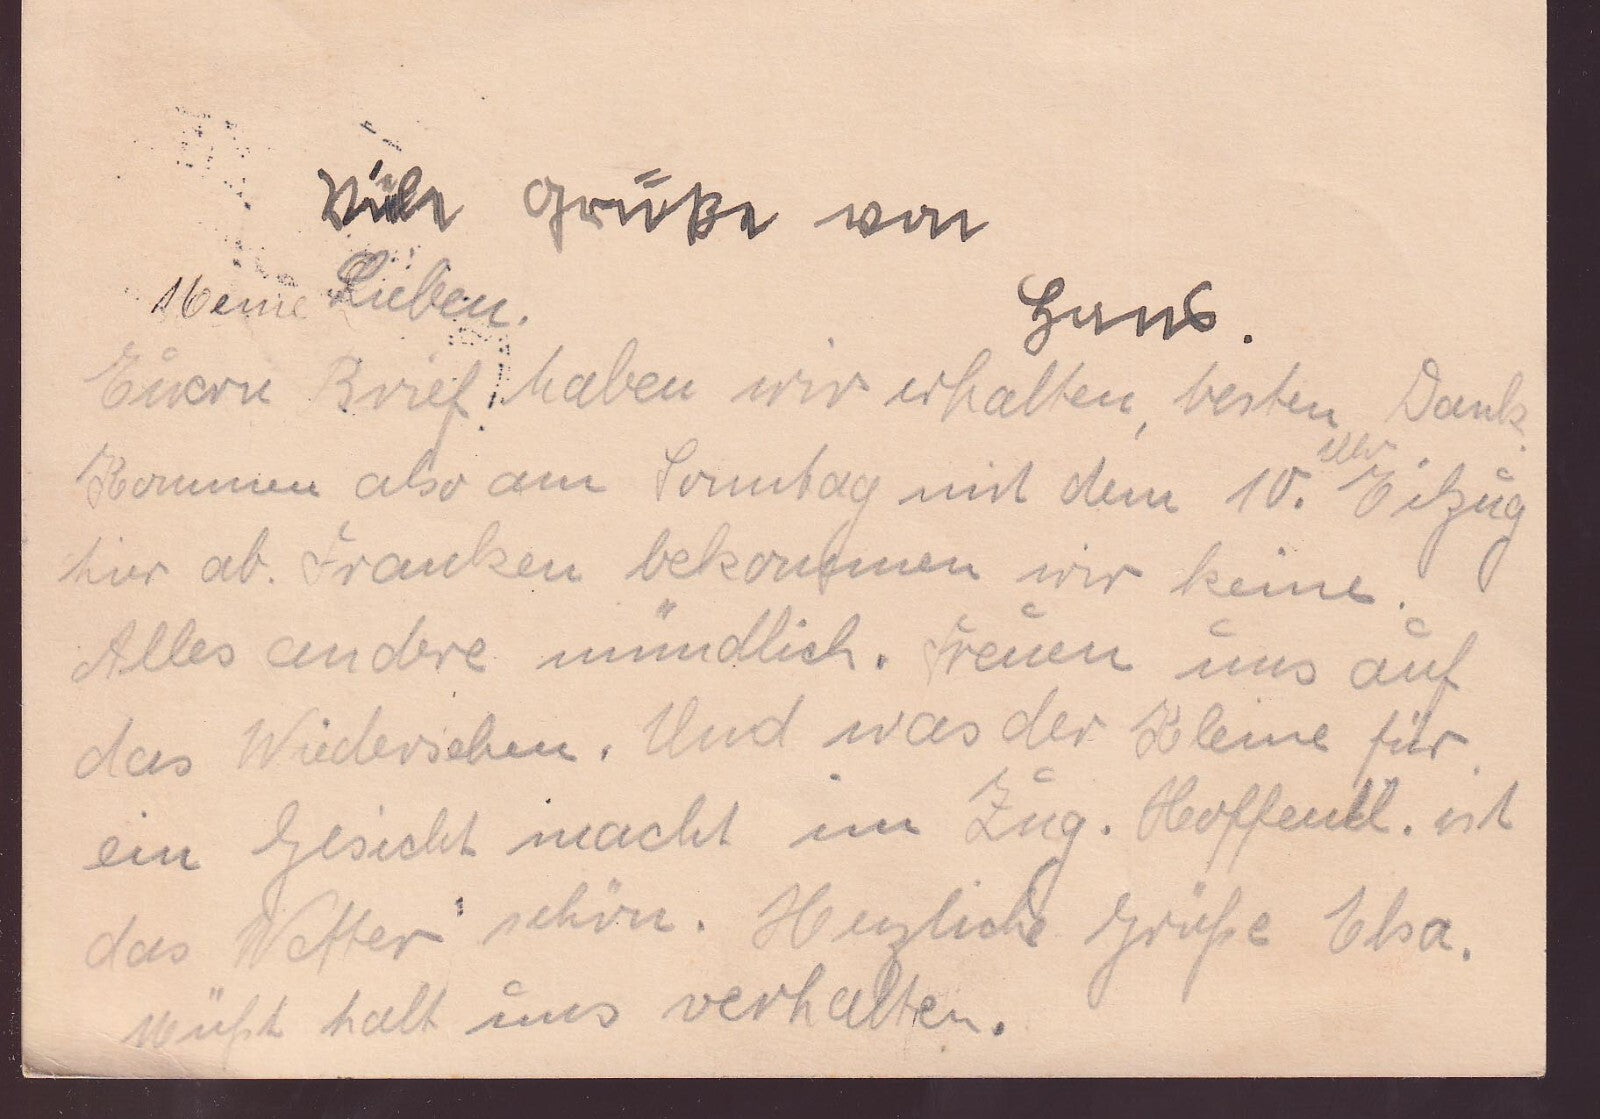 Viele Grüße von
Hans.
Meine Lieben.
Euern Brief haben wir erhalten, besten Dank.
Kommen also am Sonntag mit dem 10. Uhr Eilzug
hier ab. Franken bekommen wir keine.
Alles andere mündlich. Freuen uns auf
das Wiedersehen. Und was der Kleine für
ein Gesicht macht im Zug. Hoffentl. ist
das Wetter schön. Herzliche Grüße Elsa.
Müßt halt uns verhalten.